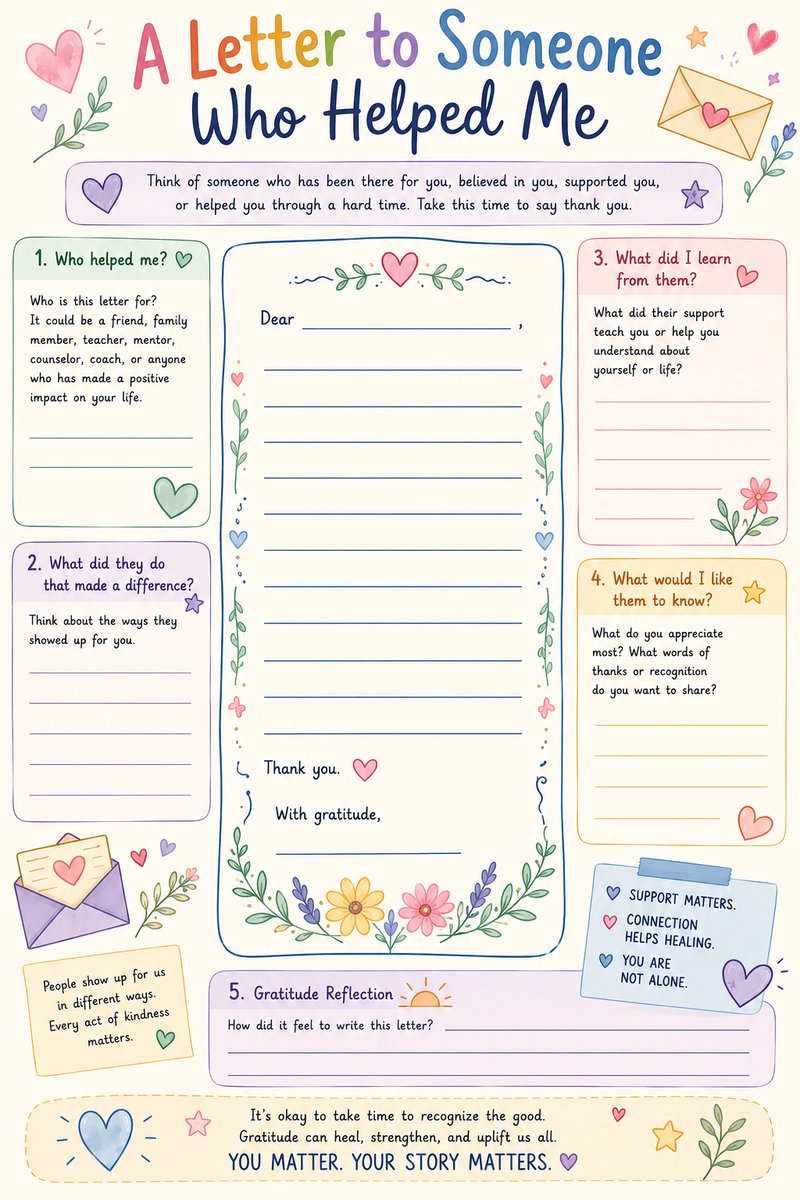 A Letter to Someone
Who Helped Me
Think of someone who has been there for you, believed in you, supported you,
or helped you through a hard time. Take this time to say thank you.
1. Who helped me?
Who is this letter for?
It could be a friend, family
member, teacher, mentor,
counselor, coach, or anyone
who has made a positive
impact on your life.
2. What did they do
that made a difference?
Think about the ways they
showed up for you.
Dear ,
Thank you.
With gratitude,
3. What did I learn
from them?
What did their support
teach you or help you
understand about
yourself or life?
4. What would I like
them to know?
What do you appreciate
most? What words of
thanks or recognition
do you want to share?
SUPPORT MATTERS.
CONNECTION
HELPS HEALING.
YOU ARE
NOT ALONE.
People show up for us
in different ways.
Every act of kindness
matters.
5. Gratitude Reflection
How did it feel to write this letter?
It's okay to take time to recognize the good.
Gratitude can heal, strengthen, and uplift us all.
YOU MATTER. YOUR STORY MATTERS.